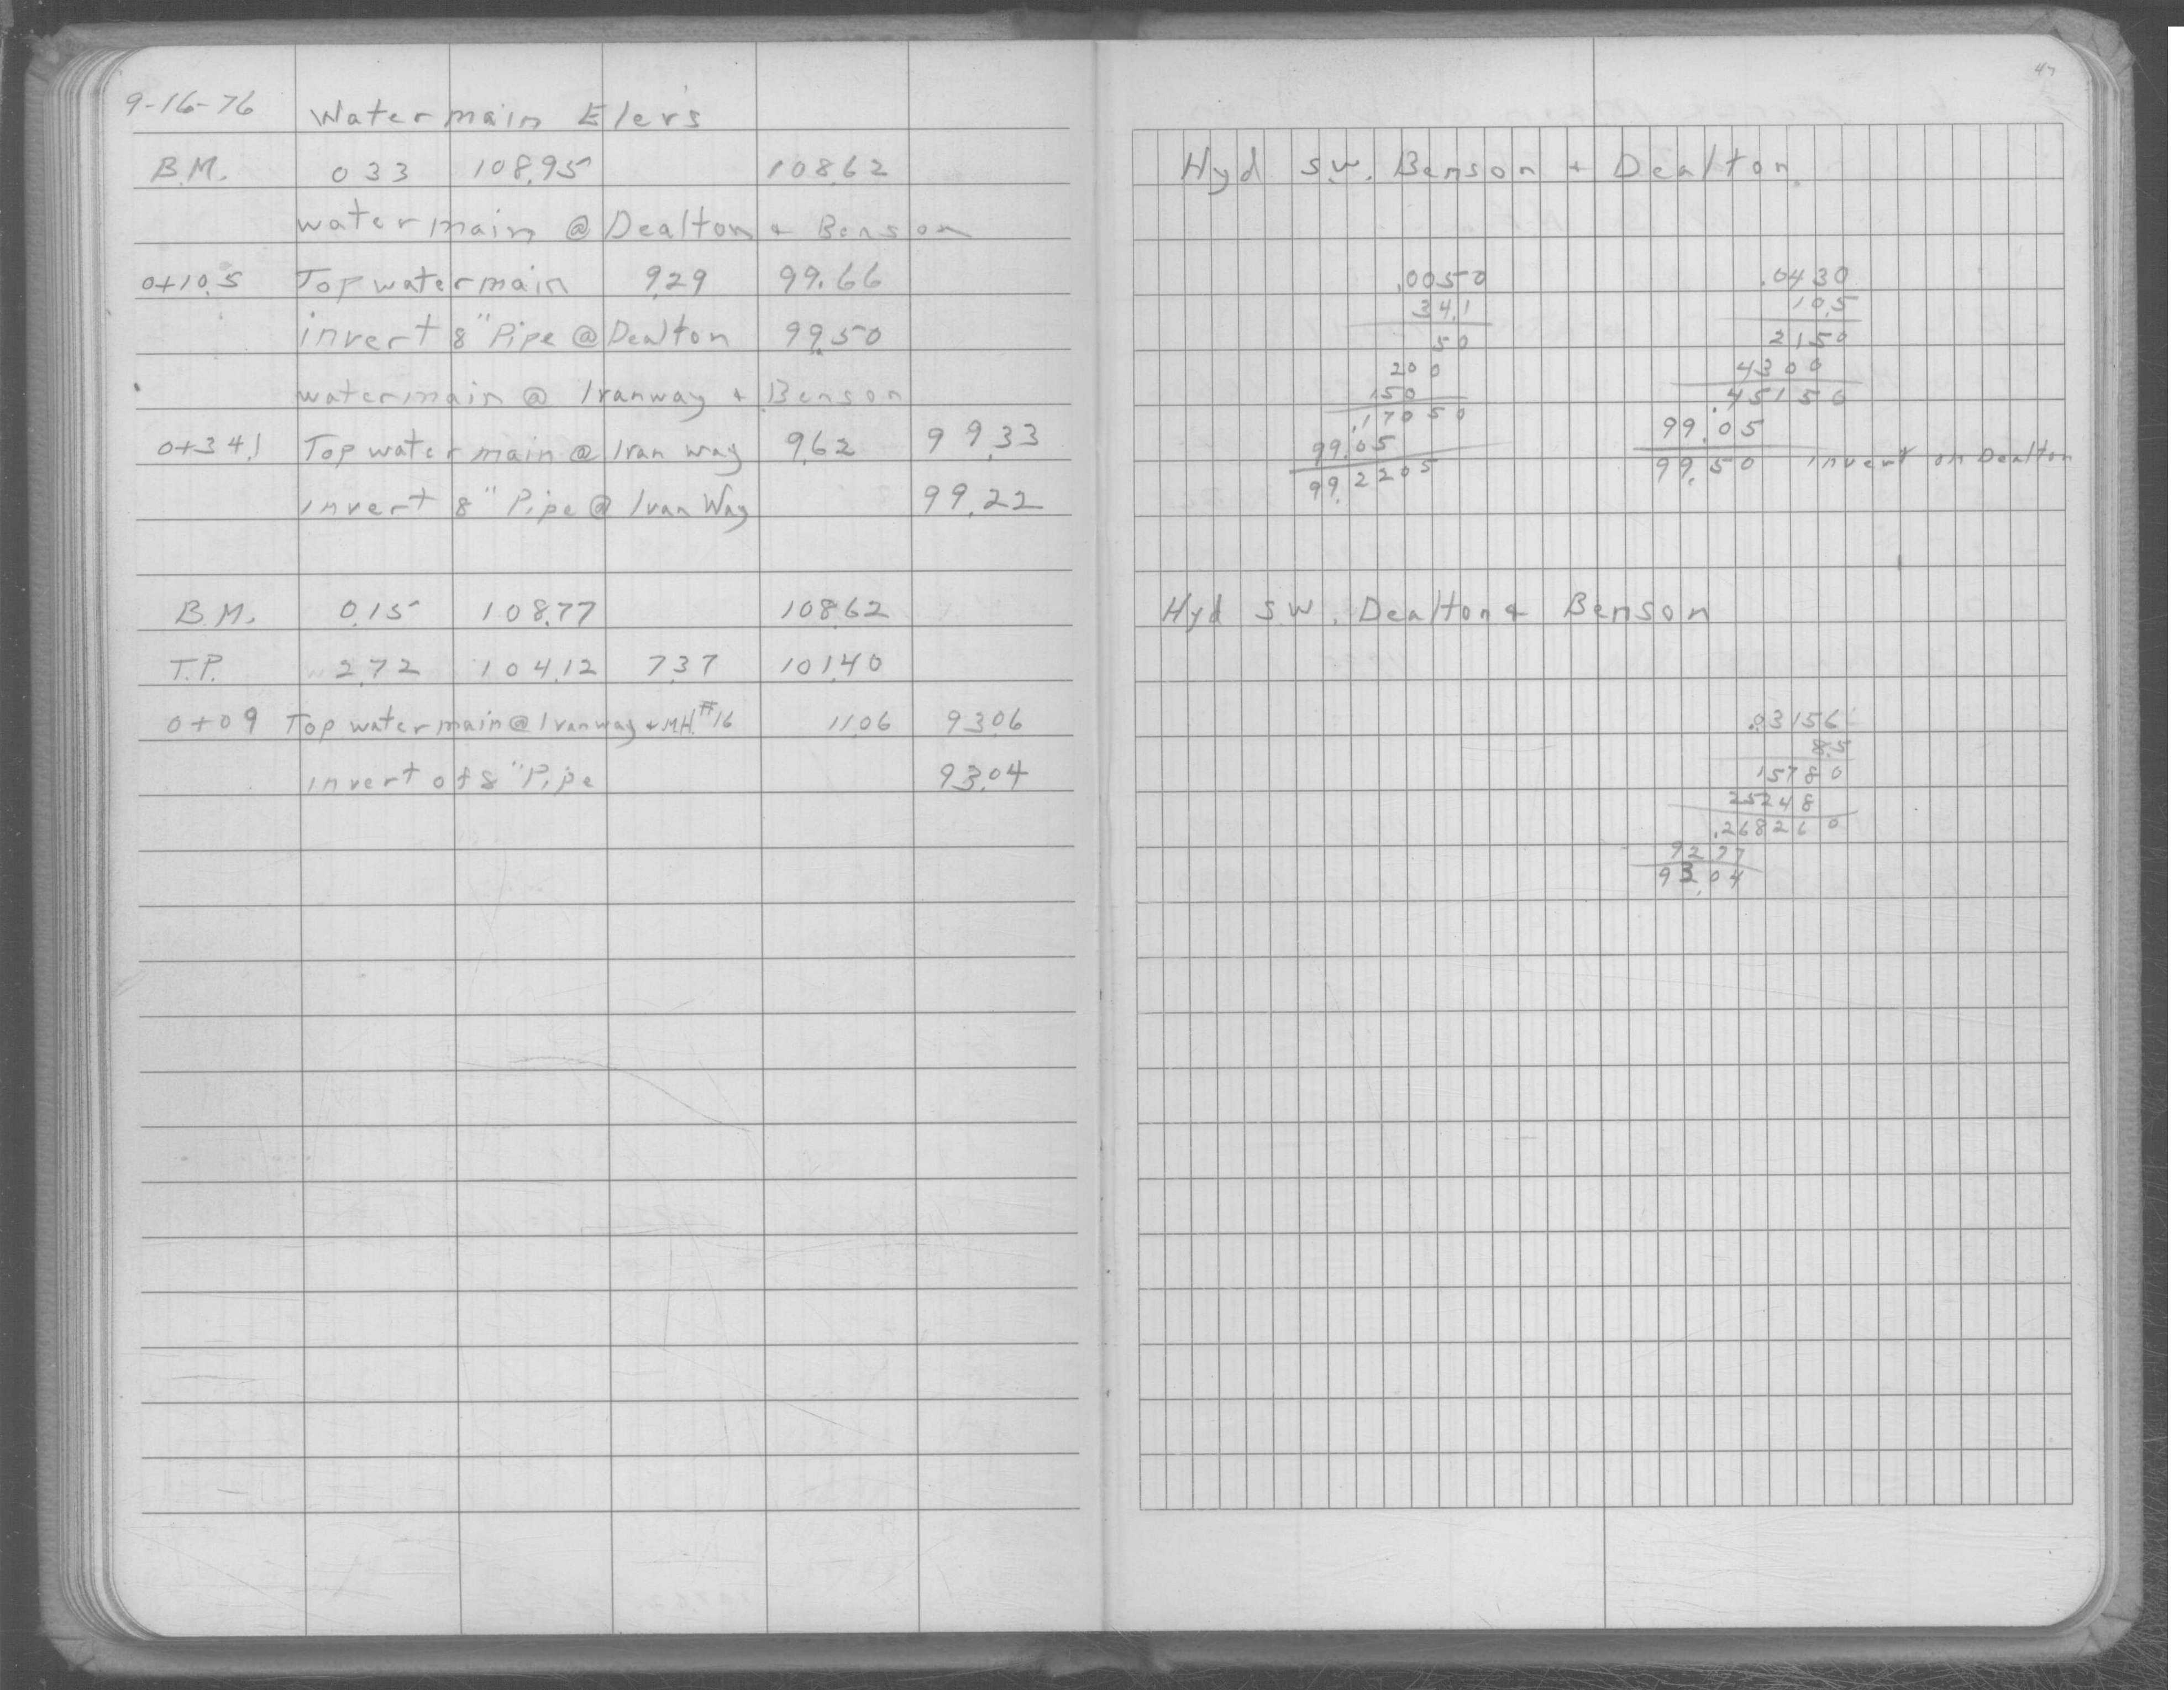 9-16-76 Watermain Elev's
B.M. 0.33 108.95 108.62
watermain @ Dealton & Benson
0+10.5 Top watermain 9.29 99.66
invert 8" Pipe @ Dealton 99.50
watermain @ Ivanway & Benson
0+34.1 Top watermain @ Ivan way 9.62 99.33
invert 8" Pipe @ Ivan Way 99.22
B.M. 0.15 108.77 108.62
T.P. 2.72 104.12 7.37 101.40
0+09 Top watermain @ Ivanway & MH #16 11.06 93.06
invert of 8" Pipe 93.04
47
Hyd SW. Benson + Dealton
.0050
34.1
50
200
150
.17050
99.05
99.2205
.0430
10.5
2150
4300
.45150
99.05
99.50 invert on Dealton
Hyd SW. Dealton & Benson
.03156
8.5
15780
25248
.268260
92.77
93.04